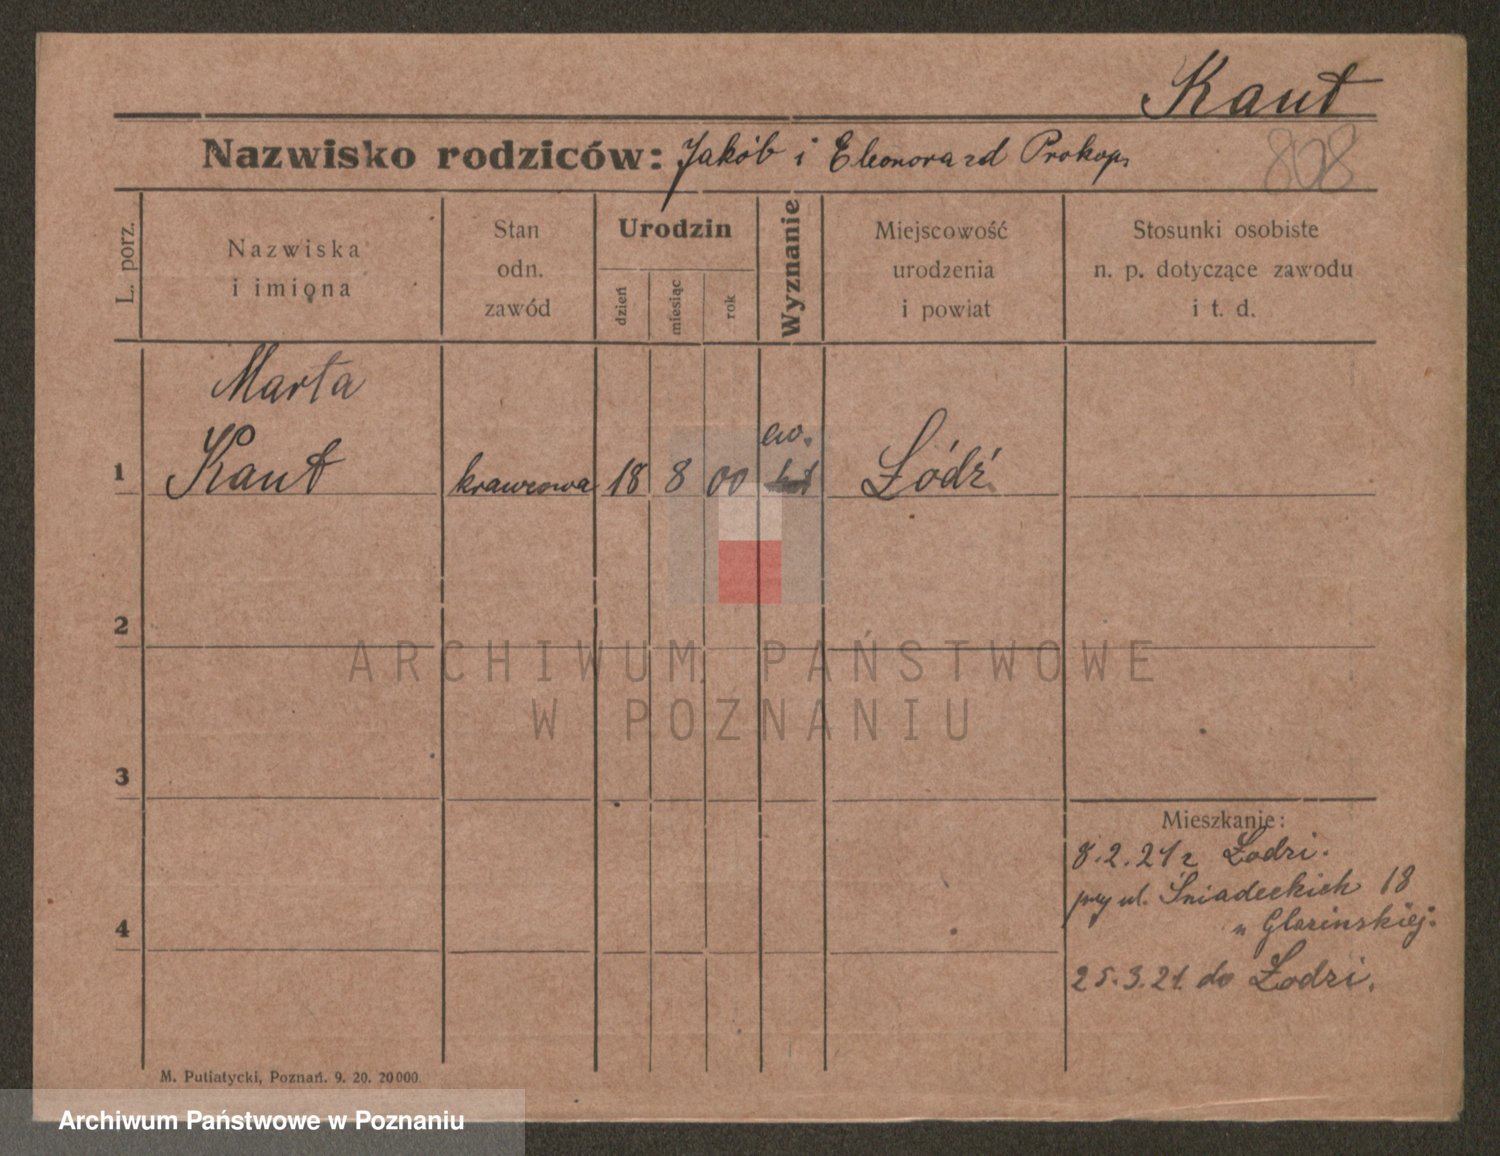 Kaut
Nazwisko rodziców: Jakób i Eleonora zd Prokop.
808
L. porz.
Nazwiska
i imiona
Stan
odn.
zawód
Urodzin
dzień
miesiąc
rok
Wyznanie
Miejscowość
urodzenia
i powiat
Stosunki osobiste
n. p. dotyczące zawodu
i t. d.
Marta
1 Kaut krawcowa 18 8 00 ew. Łódź
2
ARCHIWUM PAŃSTWOWE
W POZNANIU
3
Mieszkanie:
8.2.21 z Łodzi.
przy ul. Śniadeckich 18
u Glazinskiej.
4
25.3.21. do Łodzi.
M. Putiatycki, Poznań. 9. 20. 20000.
Archiwum Państwowe w Poznaniu